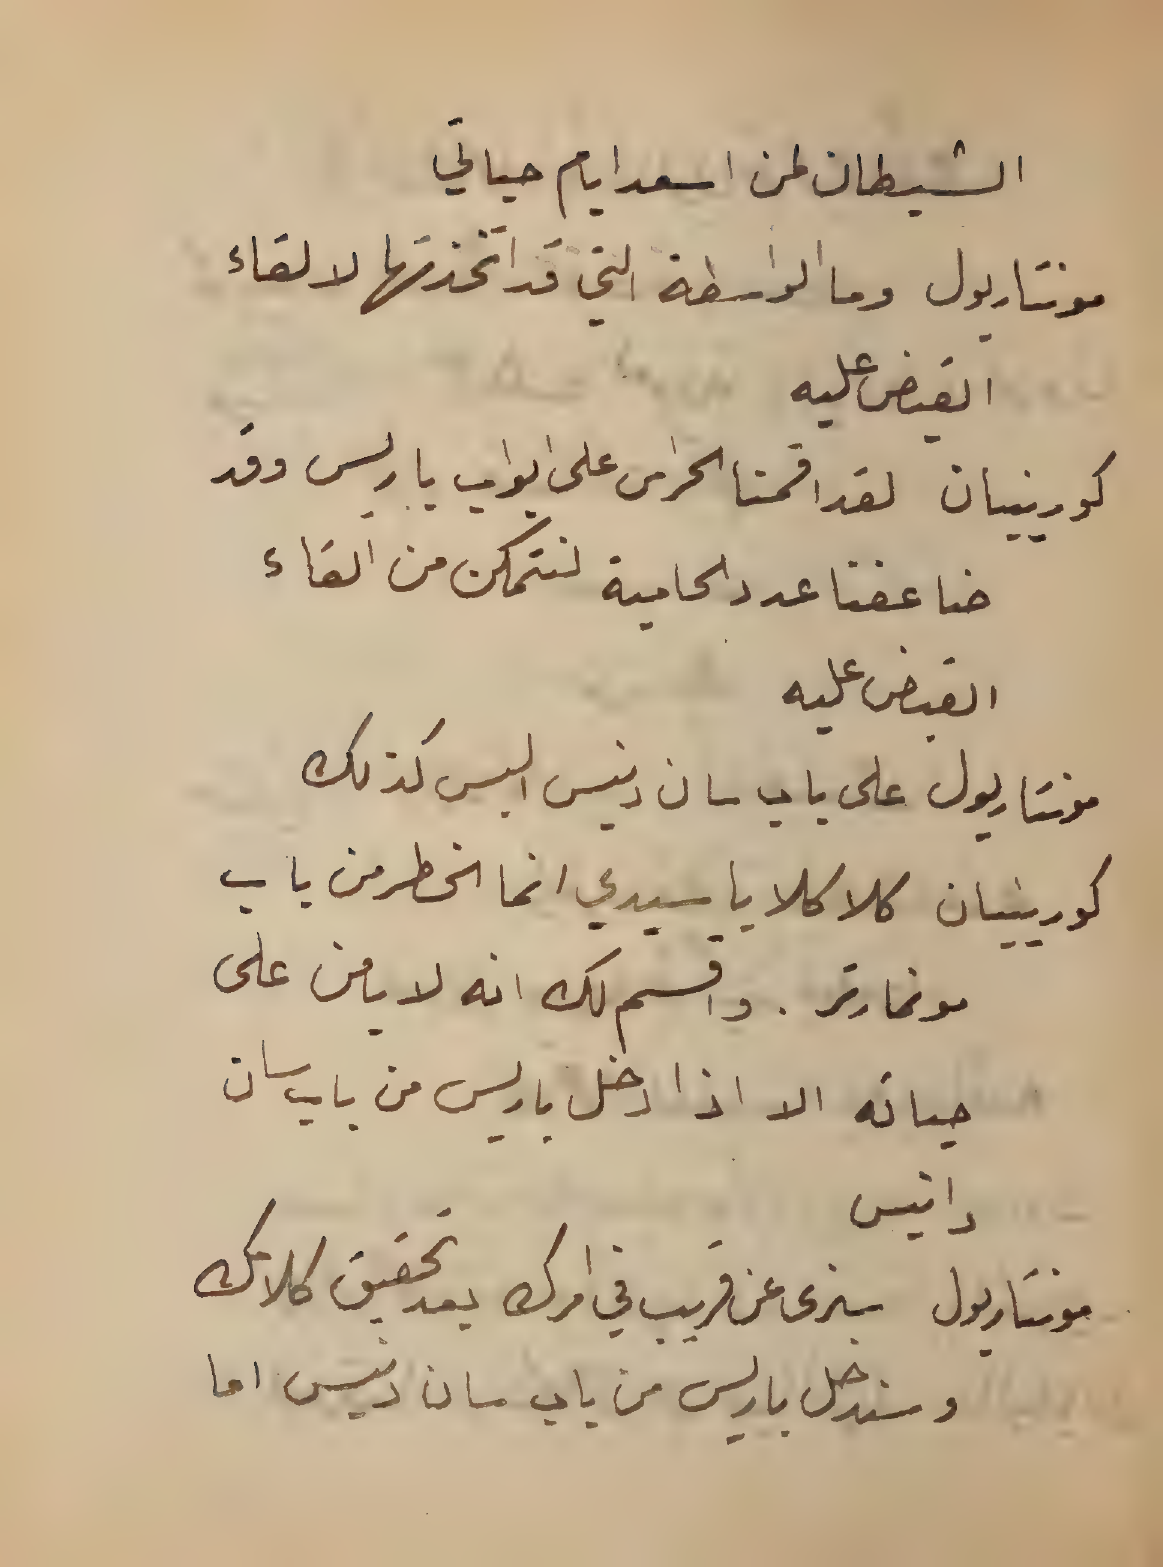 الشيطان لمن اسعد ايام حياتي
مونتاريول وما الواسطة التي قد اتخذتها لالقاء
القبض عليه
كورينيان لقد اقمنا الحراس على ابواب باريس وقد
ضاعفنا عدد الحامية لنتمكن من القاء
القبض عليه
مونتاريول على باب سان دنيس اليس كذلك
كورينيان كلا كلا يا سيدي انما الخطر من باب
مونمارتر . واقسم لك انه لا يامن على
حياته الا اذا دخل باريس من باب سان
دانيس
مونتاريول سنرى عن قريب في امرك بعد تحقيق كلامك
وسندخل باريس من باب سان دنيس اما